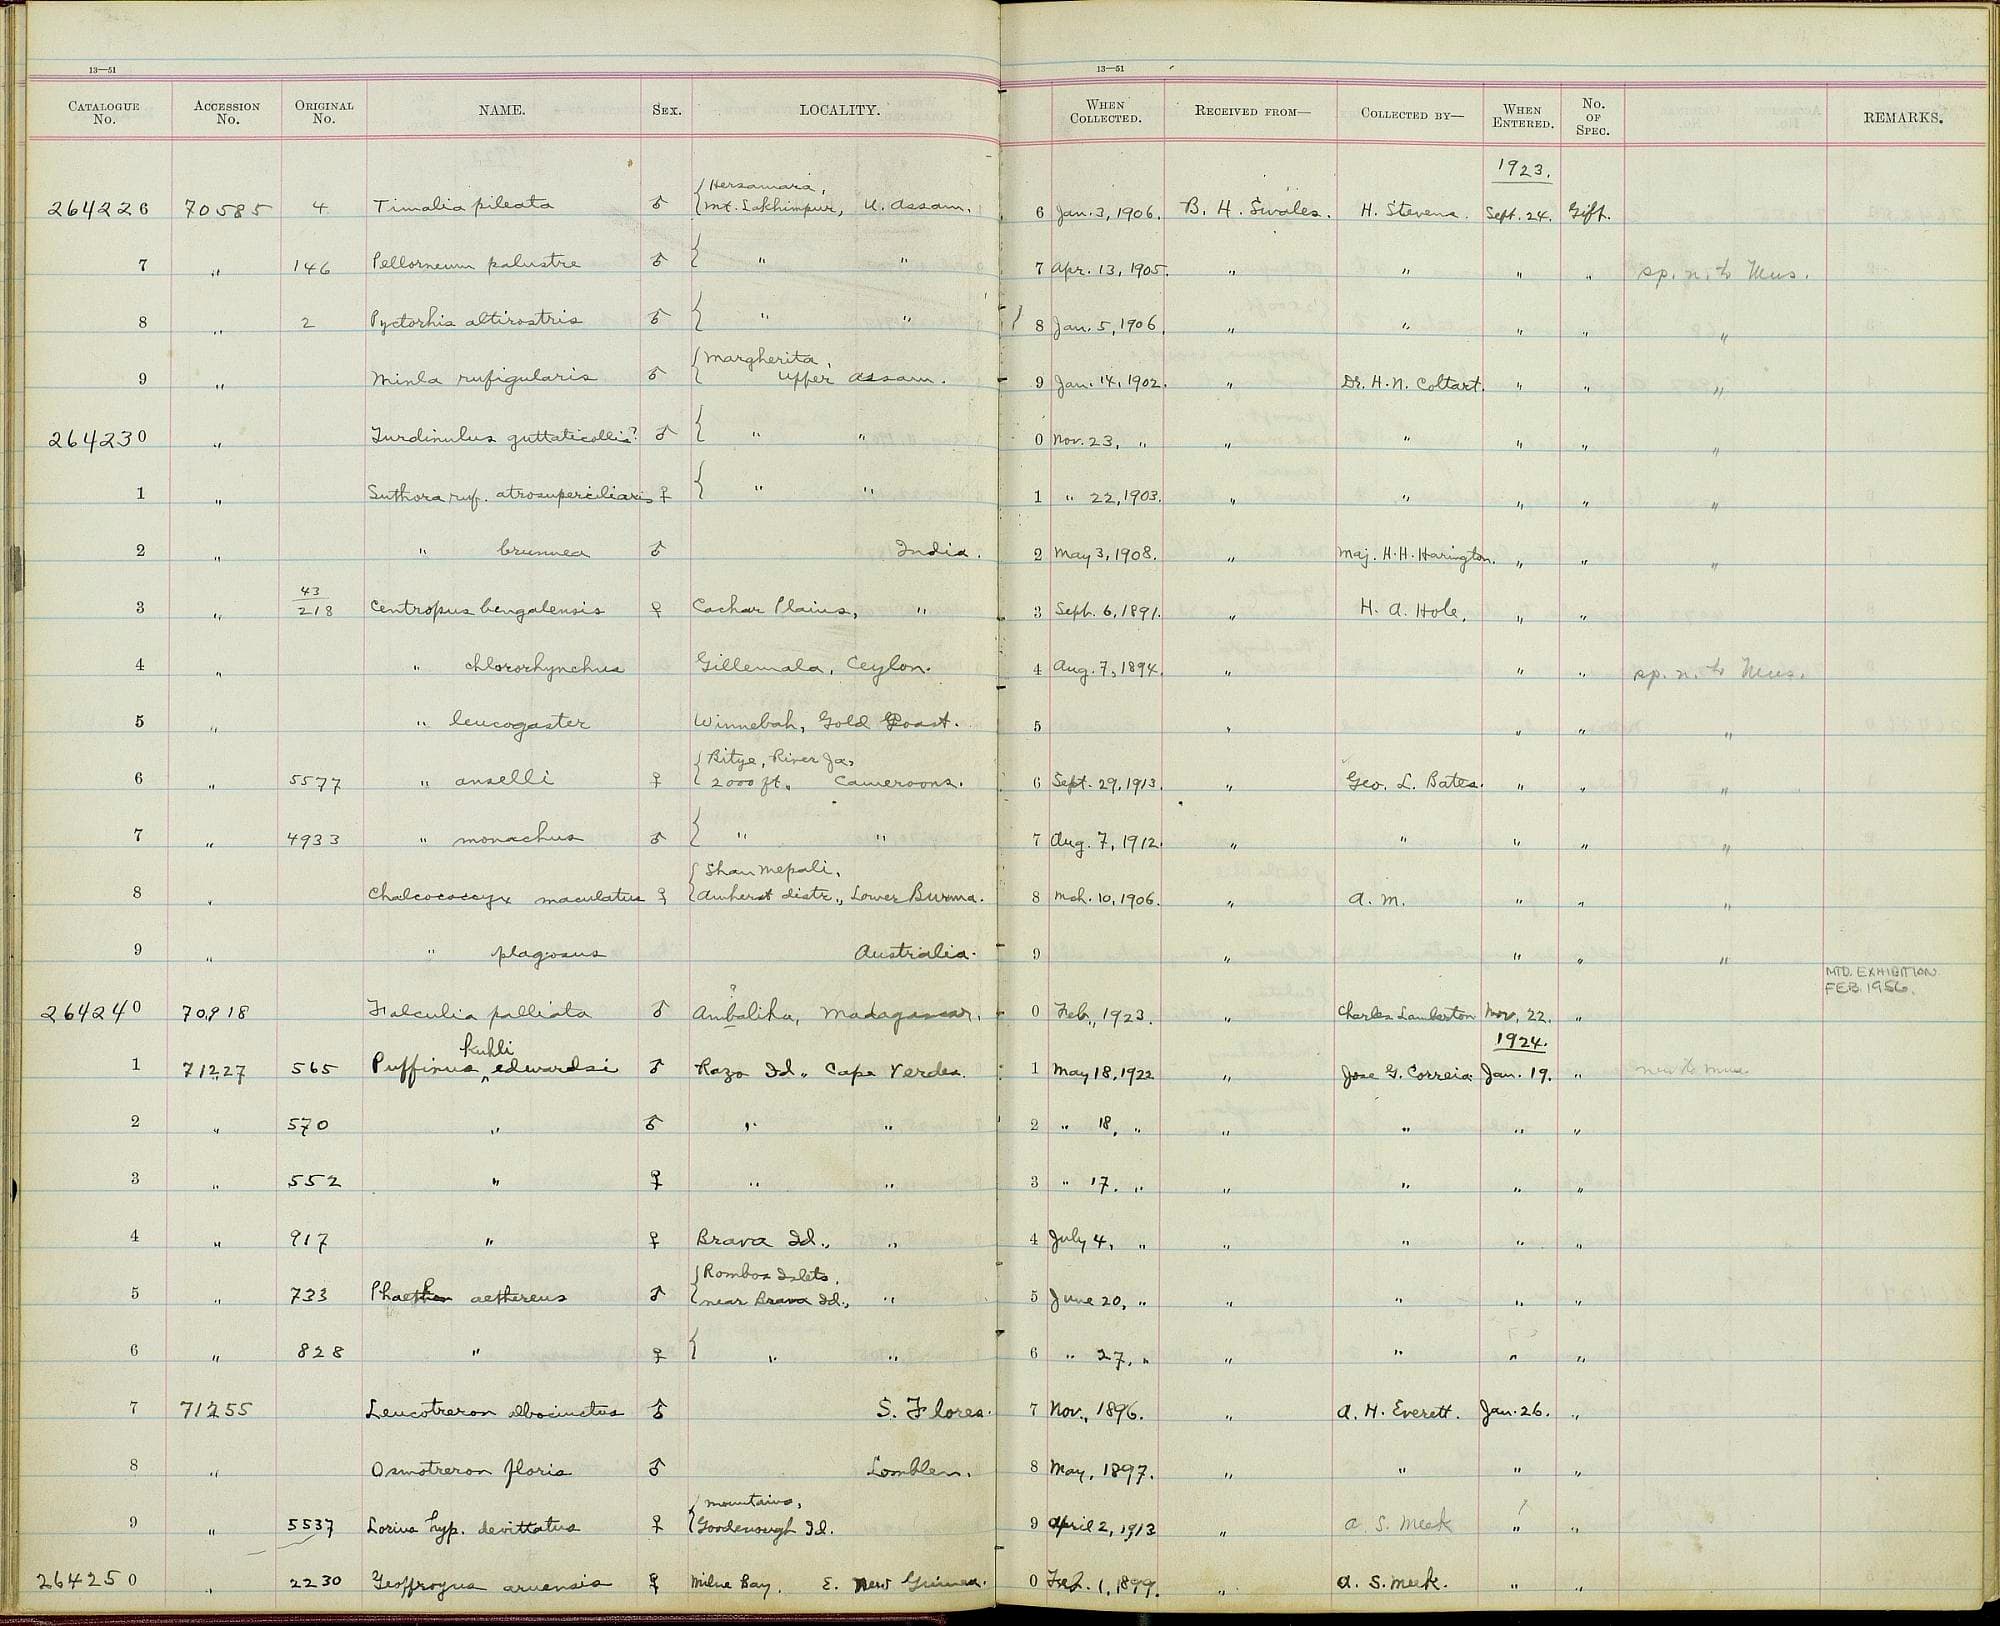 13—51
13—51
CATALOGUE No. ACCESSION No. ORIGINAL No. NAME. SEX. LOCALITY. WHEN COLLECTED. RECEIVED FROM— COLLECTED BY— WHEN ENTERED. No. OF SPEC. REMARKS.
1923.
264226 70585 4 Timalia pileata ♂ { Hersamara, Mt. Lakhimpur, U. Assam. 6 Jan. 3, 1906. B. H. Swales. H. Stevens. Sept. 24. Gift.
7 " 146 Pellorneum palustre ♂ { " " 7 Apr. 13, 1905. " " " " sp. n. to Mus.
8 " 2 Pyctorhis altirostris ♂ { " " 8 Jan. 5, 1906. " " " " "
9 " Minla rufigularis ♂ { Margherita, Upper Assam. 9 Jan. 14, 1902. " Dr. H. N. Coltart. " " "
264230 " Turdinulus guttaticollis? ♂ { " " 0 Nov. 23, " " " " " "
1 " Suthora ruf. atrosuperciliaris ♀ { " " 1 " 22, 1903. " " " " "
2 " " brunnea ♂ India. 2 May 3, 1908. " Maj. H. H. Harington. " " "
3 " 43/218 Centropus bengalensis ♀ Cachar Plains, " 3 Sept. 6, 1891. " H. A. Hole. " "
4 " " chlororhynchus Gillemala, Ceylon. 4 Aug. 7, 1894. " " " sp. n. to Mus.
5 " " leucogaster Winnebah, Gold Coast. 5 " " " "
6 " 5577 " anselli ♀ { Bitye, River Ja, 2000 ft. Cameroons. 6 Sept. 29, 1913. " Geo. L. Bates. " " "
7 " 4933 " monachus ♂ { " " 7 Aug. 7, 1912. " " " " "
8 " Chalcococcyx maculatus ♀ { Shan Mepali, Amherst distr., Lower Burma. 8 Mch. 10, 1906. " A. M. " " "
9 " " plagosus Australia. 9 " " " "
MTD. EXHIBITION FEB. 1956.
264240 70918 Falculia palliata ♂ Ambaliha, ? Madagascar. 0 Feb., 1923. " Charles Lamberton Nov. 22. "
1924.
1 71227 565 Puffinus kuhli edwardsi ♂ Razo Id., Cape Verdes. 1 May 18, 1922 " Jose G. Correia. Jan. 19. " new to Mus.
2 " 570 " ♂ " " 2 " 18, " " " " "
3 " 552 " ♀ " " 3 " 17, " " " " "
4 " 917 " ♀ Brava Id., " 4 July 4, " " " " "
5 " 733 Phaethon aethereus ♂ { Rombos Islets, near Brava Id., " 5 June 20, " " " " "
6 " 828 " ♀ { " " 6 " 27, " " " " "
7 71255 Leucotreron albocinctus ♂ S. Flores. 7 Nov., 1896. " A. H. Everett. Jan. 26. "
8 " Osmotreron floris ♂ Lomblen. 8 May, 1897. " " " "
9 " 5537 Lorius hyp. devittatus ♀ { Mountains, Goodenough Id. 9 April 2, 1913 " A. S. Meek " "
264250 " 2230 Geoffroyus aruensis ♀ Milne Bay, E. New Guinea. 0 Feb. 1, 1899. " A. S. Meek. " "